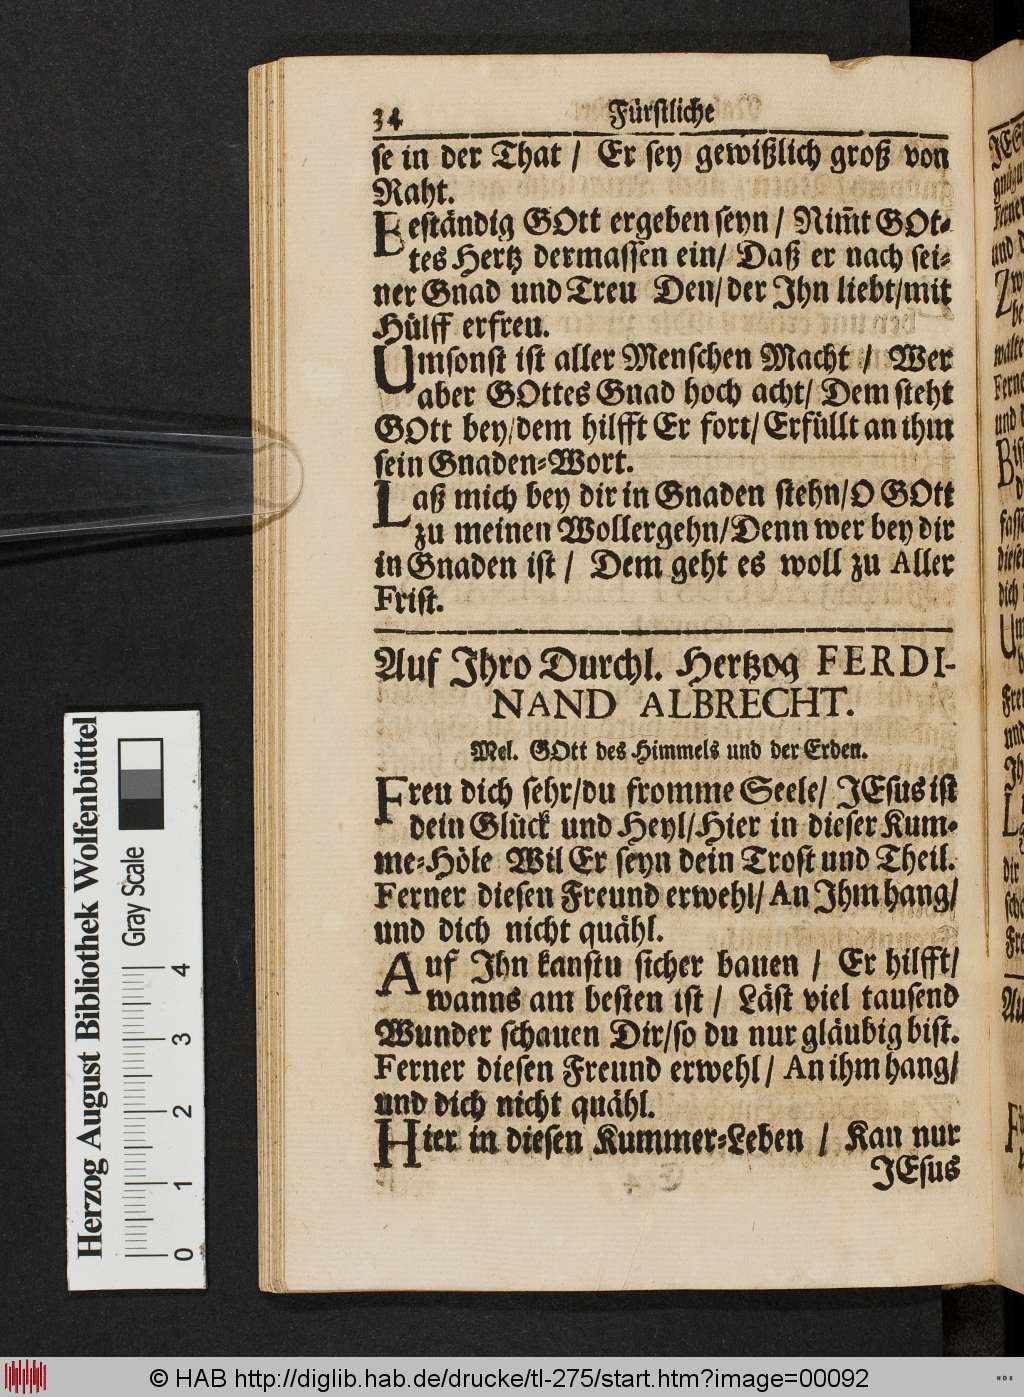 34 Fürstliche
se in der That / Er sey gewißlich groß von
Raht.
Beständig GOtt ergeben seyn / Nim̃t GOt-
tes Hertz dermassen ein/ Daß er nach sei-
ner Gnad und Treu Den/ der Ihn liebt/mit
Hülff erfreu.
Umsonst ist aller Menschen Macht / Wer
aber GOttes Gnad hoch acht/ Dem steht
GOtt bey/dem hilfft Er fort/ Erfüllt an ihm
sein Gnaden-Wort.
Laß mich bey dir in Gnaden stehn/O GOtt
zu meinen Wollergehn/Denn wer bey dir
in Gnaden ist / Dem geht es woll zu Aller
Frist.
Auf Ihro Durchl. Hertzog FERDI-
NAND ALBRECHT.
Mel. GOtt des Himmels und der Erden.
Freu dich sehr/du fromme Seele/ JEsus ist
dein Glück und Heyl/Hier in dieser Kum-
me-Höle Wil Er seyn dein Trost und Theil.
Ferner diesen Freund erwehl/ An Ihm hang/
und dich nicht quähl.
Auf Ihn kanstu sicher bauen / Er hilfft/
wanns am besten ist / Läst viel tausend
Wunder schauen Dir/so du nur gläubig bist.
Ferner diesen Freund erwehl/ An ihm hang/
und dich nicht quähl.
Hier in diesen Kummer-Leben / Kan nur
JEsus
Herzog August Bibliothek Wolfenbüttel
Gray Scale
0 1 2 3 4
© HAB http://diglib.hab.de/drucke/tl-275/start.htm?image=00092